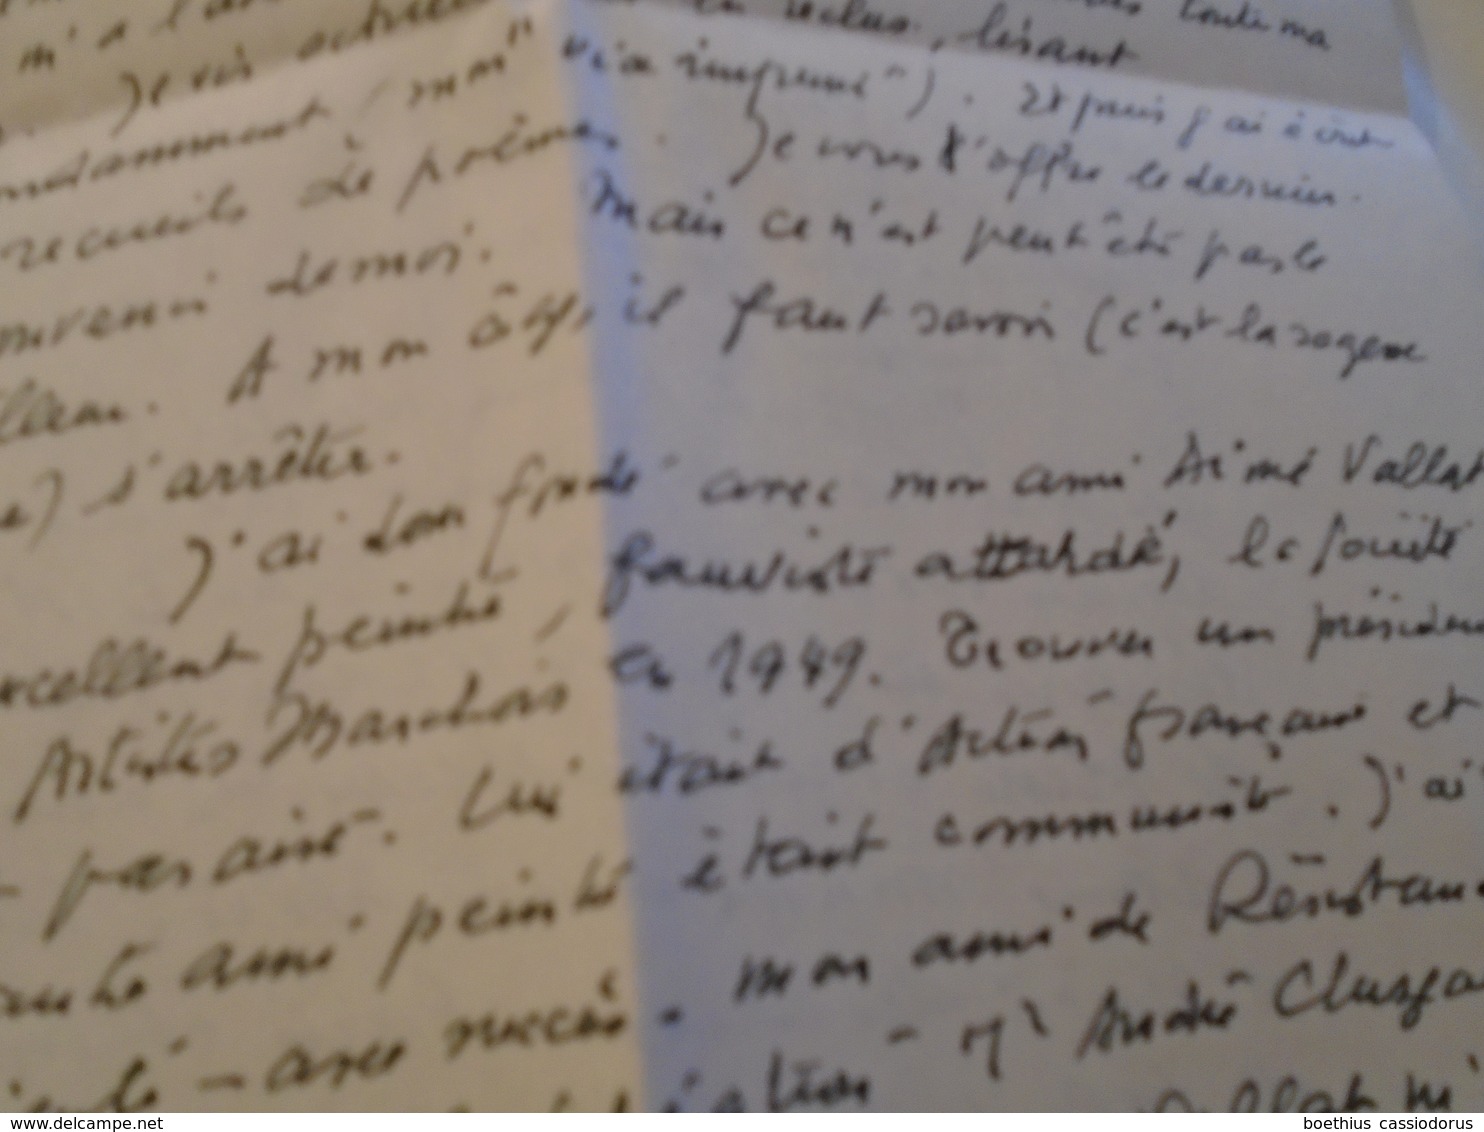 m'a l'
Je vis en reclus, lisant toute ma
"m'a imprimé"). Et puis j'ai écrit
recueils de poèmes. Je vous l'offre le dernier.
souvenir de moi. Mais ce n'est peut être pas le
A mon âge, il faut savoir (c'est la sagesse
s'arrêter.
J'ai donc fondé avec mon ami Aimé Vallat
excellent peintre, fauviste attardé, la Société
Artistes Marchois en 1949. Trouver un président
pas aisé. Lui était d'Action française et
autre ami peintre était communiste. J'ai
- avec succès. mon ami de Résistance
- Mr André Clusza
Vallat m'
www.delcampe.net
boethius cassiodorus